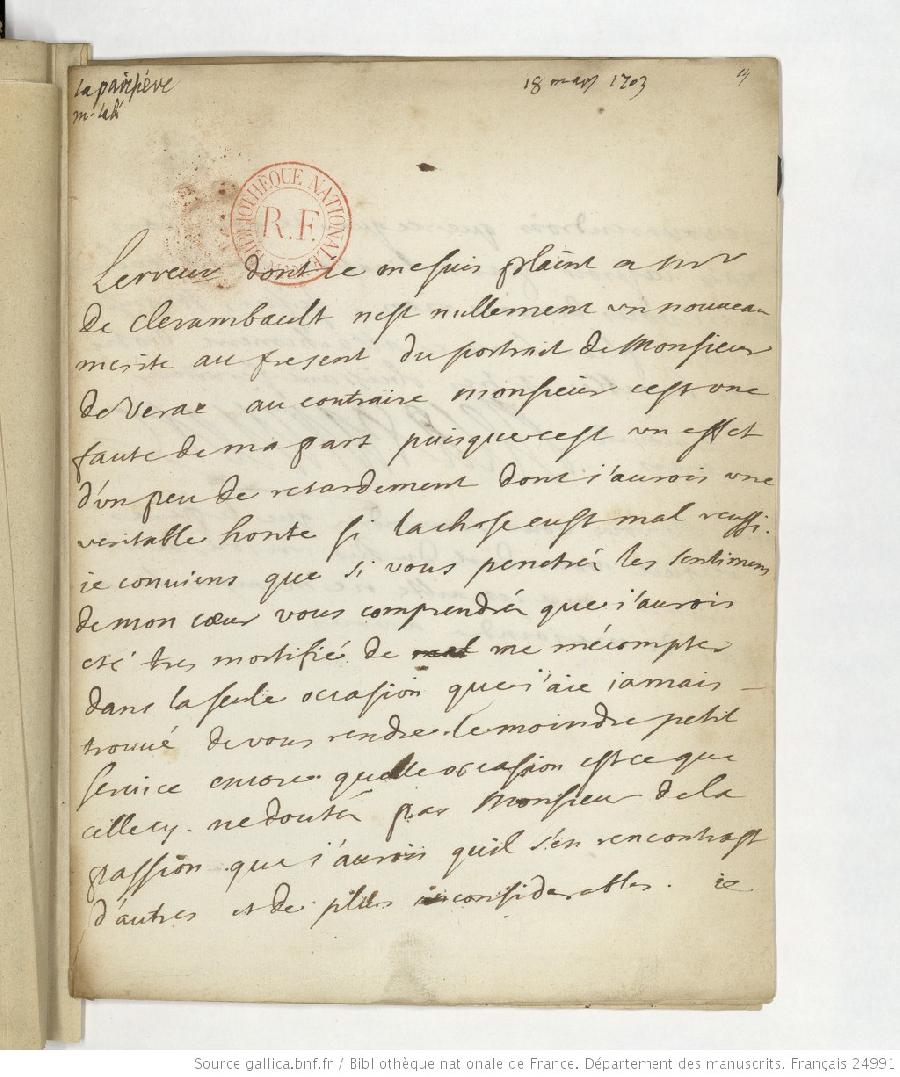 18 mars 1703
BIBLIOTHEQUE NATIONALE
R.F.
MSS
L'erreur dont ie me suis plaint a mr
de clerambault n'est nullement un nouveau
merite au present du portrait de Monsieur
de Verac au contraire monsieur c'est une
faute de ma part puisque c'est un effet
d'un peu de retardement dont j'aurois une
veritable honte si la chose eust mal reussi.
ie conviens que si vous penetrés les sentimens
de mon cœur vous comprendrés que j'aurois
eté tres mortifié de me mécompter
dans la seule occasion que j'aie iamais
trouvé de vous rendre le moindre petit
service encore quelle occasion est ce que
celle cy. ne doutés pas Monsieur de la
passion que j'aurois qu'il s'en rencontrast
d'autres et de plus considerables. ie
Source gallica.bnf.fr / Bibliothèque nationale de France. Département des manuscrits. Français 24991